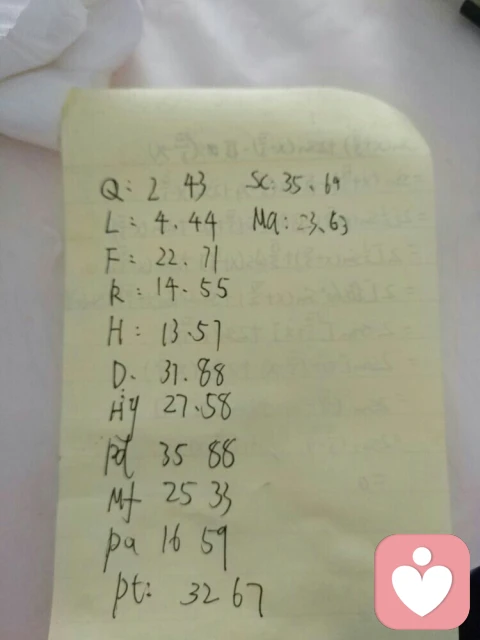 Q: 2 43 Sc: 35.69
L: 4.44 Ma: 23.63
F: 22.71
K: 14.55
H: 13.57
D. 37.88
Hy 27.58
Pd 35 88
Mf 25 33
Pa 16 59
Pt: 32 67